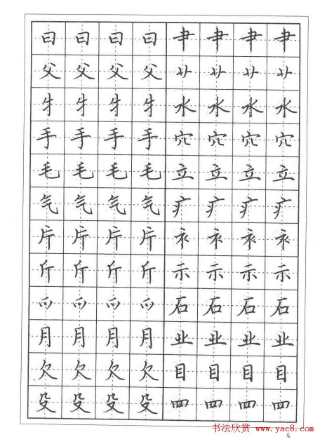 曰曰曰曰肀肀肀肀
父父父父艹艹艹艹
牛牛牛牛水水水水
手手手手穴穴穴穴
毛毛毛毛立立立立
气气气气疒疒疒疒
片片片片衤衤衤衤
斤斤斤斤示示示示
爫爫爫爫石石石石
月月月月业业业业
欠欠欠欠目目目目
殳殳殳殳罒罒罒罒
书法欣赏 www.yac8.com
5